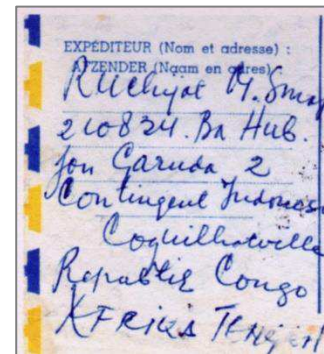 EXPÉDITEUR (Nom et adresse) :
AFZENDER (Naam en adres) :
Ruchyat M.
210834. Ba Hub.
Jon Garuda 2
Contingent Indones
Coquilhatville
Republik Congo
AFRIKA TENGAH